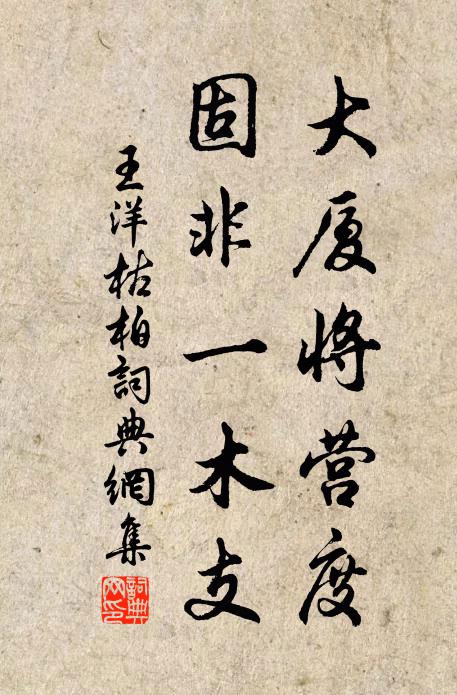 大厦将营度
固非一木支
王洋枯柏詞典網集
詞典网印